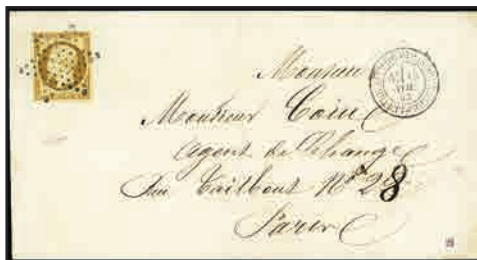 Monsieur
Monsieur Coin
agent de Change
Rue Taitbout N° 28
Paris